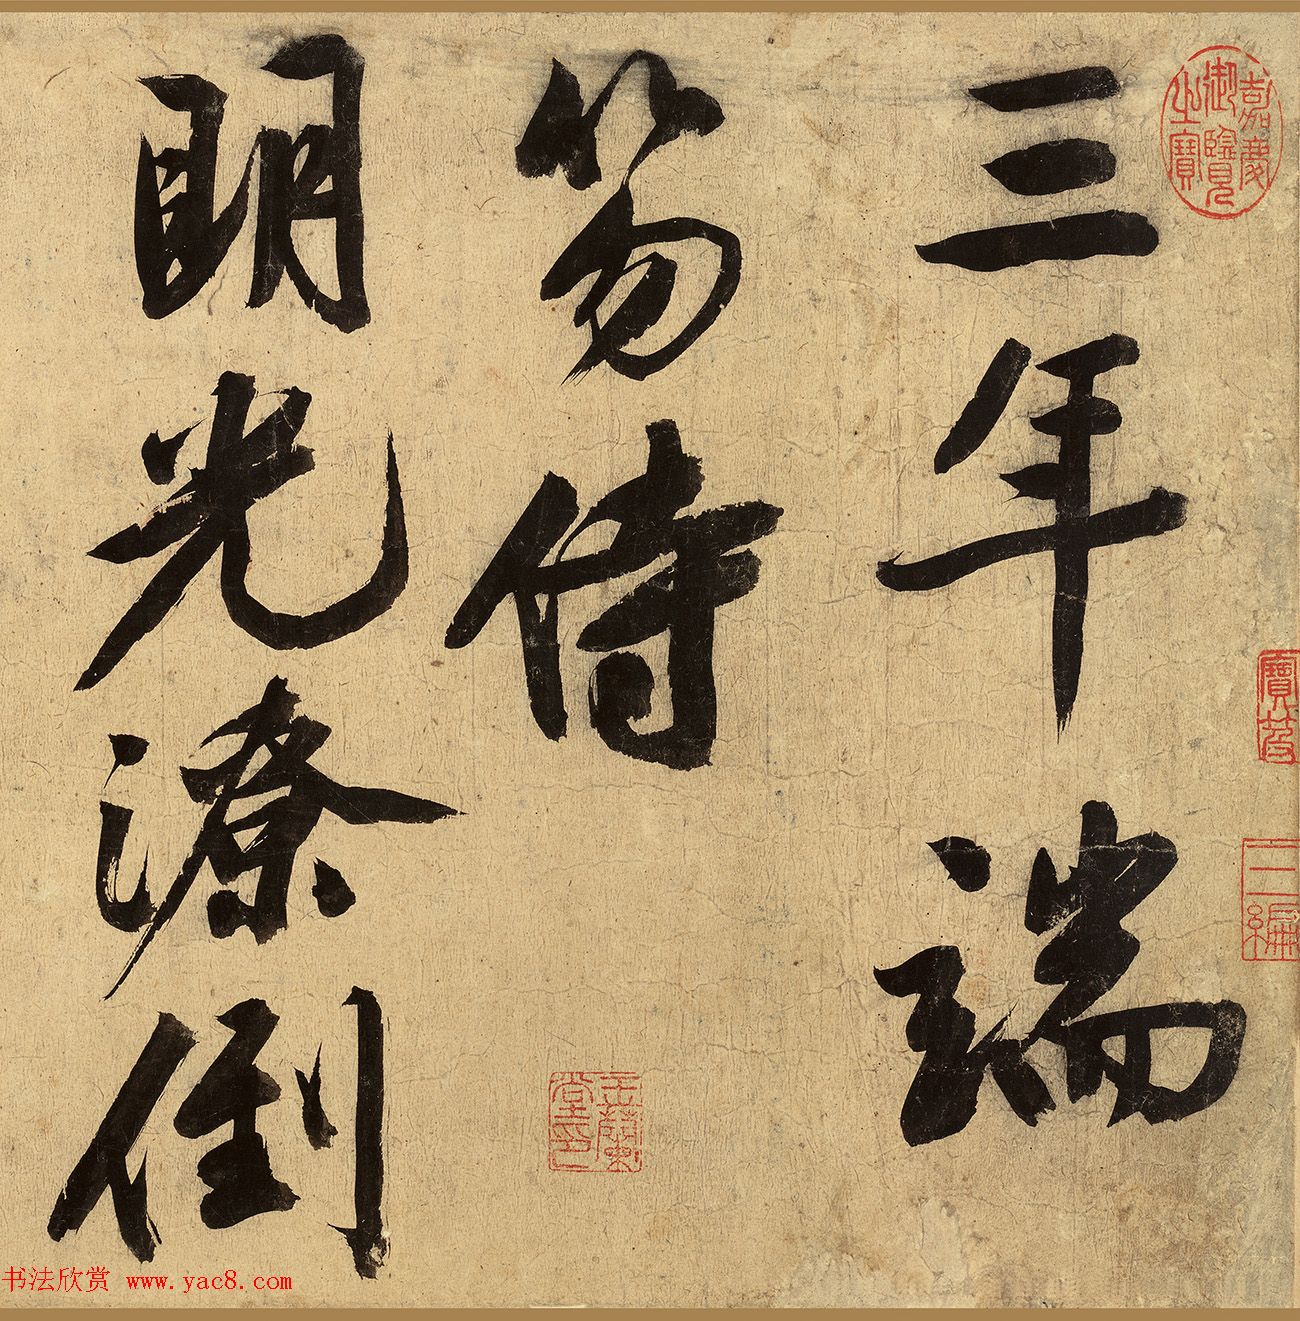 三年端
笏侍
明光潦倒
嘉慶御覽之寶
寶笈
三編
玉蘭堂印
书法欣赏 www.yac8.com